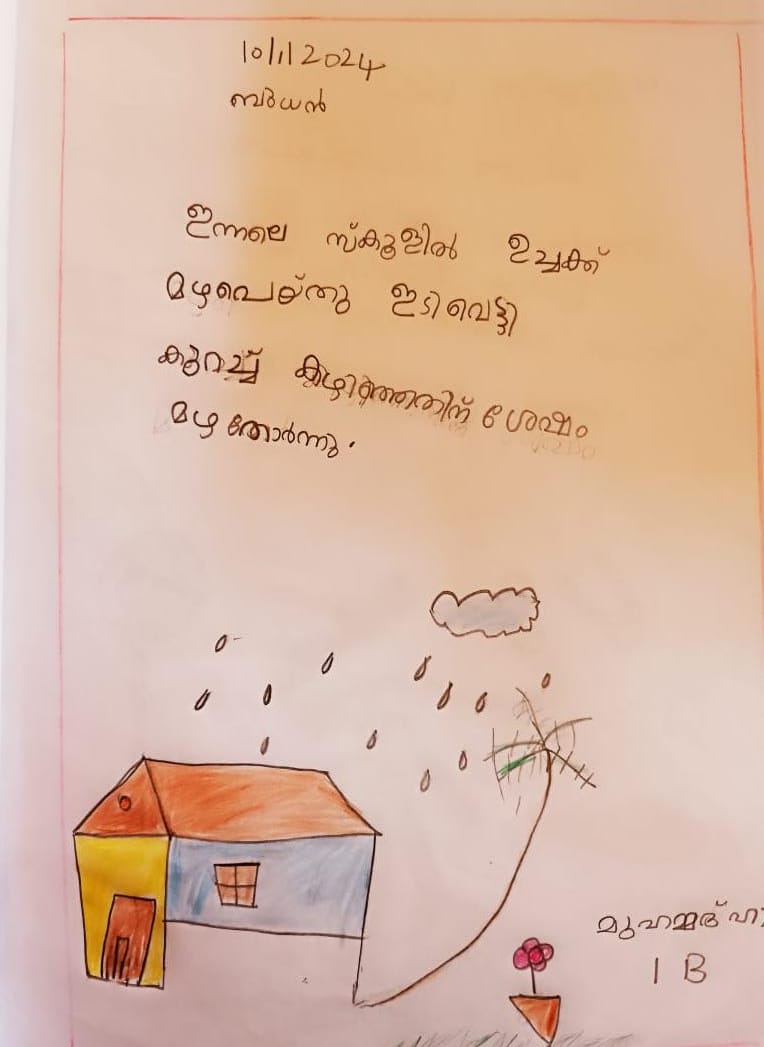 10/1/2024
ബുധൻ
ഇന്നലെ സ്കൂളിൽ ഉച്ചക്ക്
മഴപെയ്തു ഇടിവെട്ടി
കുറച്ച് കഴിഞ്ഞതിന് ശേഷം
മഴ തോർന്നു.
മുഹമ്മദ്
1 B